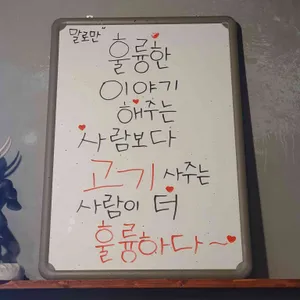 말로만"
훌륭한
이야기
해주는
사람보다
고기 사주는
사람이 더
훌륭하다~